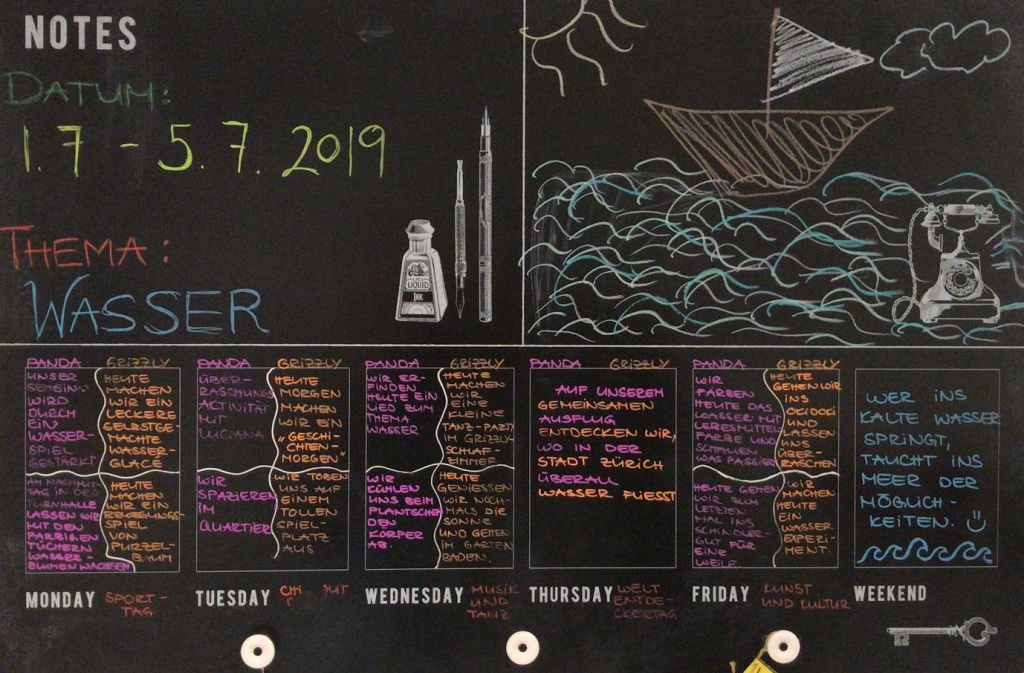 NOTES
DATUM:
1.7 - 5.7. 2019
THEMA:
WASSER
LIQUID
INK
PANDA
UNSER
WIRD
DURCH
EIN
WASSER-
SPIEL
GESTÄRKT
AM NACHMIT-
TAG IN DER
TURNHALLE
LASSEN WIR
MIT DEN
FARBIGEN
TÜCHERN
WASSER-
BLUMEN WACHSEN
GRIZZLY
HEUTE
MACHEN
WIR EIN
LECKERE
SELBSTGE-
MACHTE
WASSER-
GLACE
HEUTE
MACHEN
WIR EIN
BEWEGUNGS-
SPIEL
VON
PURZEL-
BAUM
MONDAY
SPORT-
TAG
PANDA
ÜBER-
RASCHUNGS
ACTIVITÄT
MIT
LUCIANA
WIR
SPAZIEREN
IM
QUARTIER
GRIZZLY
HEUTE
MORGEN
MACHEN
WIR EIN
„GESCHI-
CHTEN-
MORGEN"
WIR TOBEN
UNS AUF
EINEM
TOLLEN
SPIEL-
PLATZ
AUS
TUESDAY
PANDA
WIR ER-
FINDEN
HEUTE EIN
LIED ZUM
THEMA
WASSER
WIR
KÜHLEN
UNS BEIM
PLANTSCHEN
DEN
KÖRPER
AB.
GRIZZLY
HEUTE
MACHEN
WIR
EINE
KLEINE
TANZ-PARTY
IM GRIZZLY-
SCHLAF-
ZIMMER
HEUTE
GENIESSEN
WIR NOCH-
MALS DIE
SONNE
UND GEHEN
IM GARTEN
BADEN.
WEDNESDAY
MUSIK
UND
TANZ
PANDA GRIZZLY
AUF UNSEREM
GEMEINSAMEN
AUSFLUG
ENTDECKEN WIR,
WO IN DER
STADT ZÜRICH
ÜBERALL
WASSER FLIESST
THURSDAY
WELT
ENTDE-
CKERTAG
PANDA
WIR
FÄRBEN
HEUTE DAS
WASSER MIT
LEBESMITTEL
FARBE UND
SCHAUEN
WAS PASSIERT
HEUTE GEHEN
WIR ZUM
LETZTEN
MAL INS
SCHINDLER-
GUT FÜR
EINE
WEILE
GRIZZLY
HEUTE
GEHEN WIR
INS
OKIDOKI
UND
LASSEN
UNS
ÜBER-
RASCHEN
WIR
MACHEN
HEUTE
EIN
WASSER
EXPERI-
MENT.
FRIDAY
KUNST
UND KULTUR
WER INS
KALTE WASSER
SPRINGT,
TAUCHT INS
MEER DER
MÖGLICH-
KEITEN.
WEEKEND